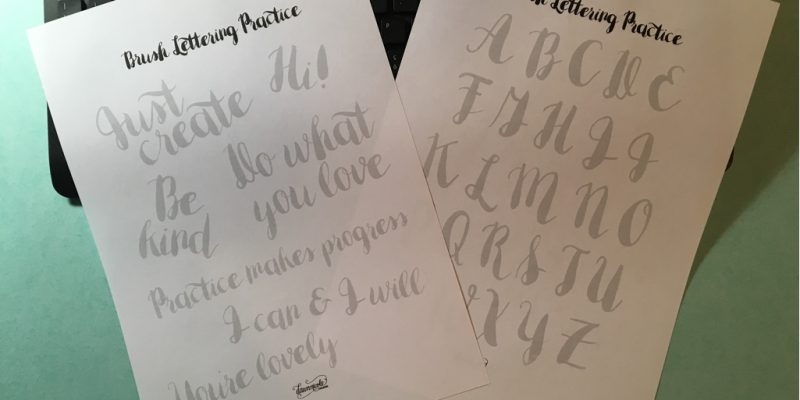 Brush Lettering Practice
Hi!
Just
create
Do what
you love
Be
kind
Practice makes progress
I can & I will
You're lovely
Lettering Practice
A B C D E
F G H I J
K L M N O
Q R S T U
X Y Z